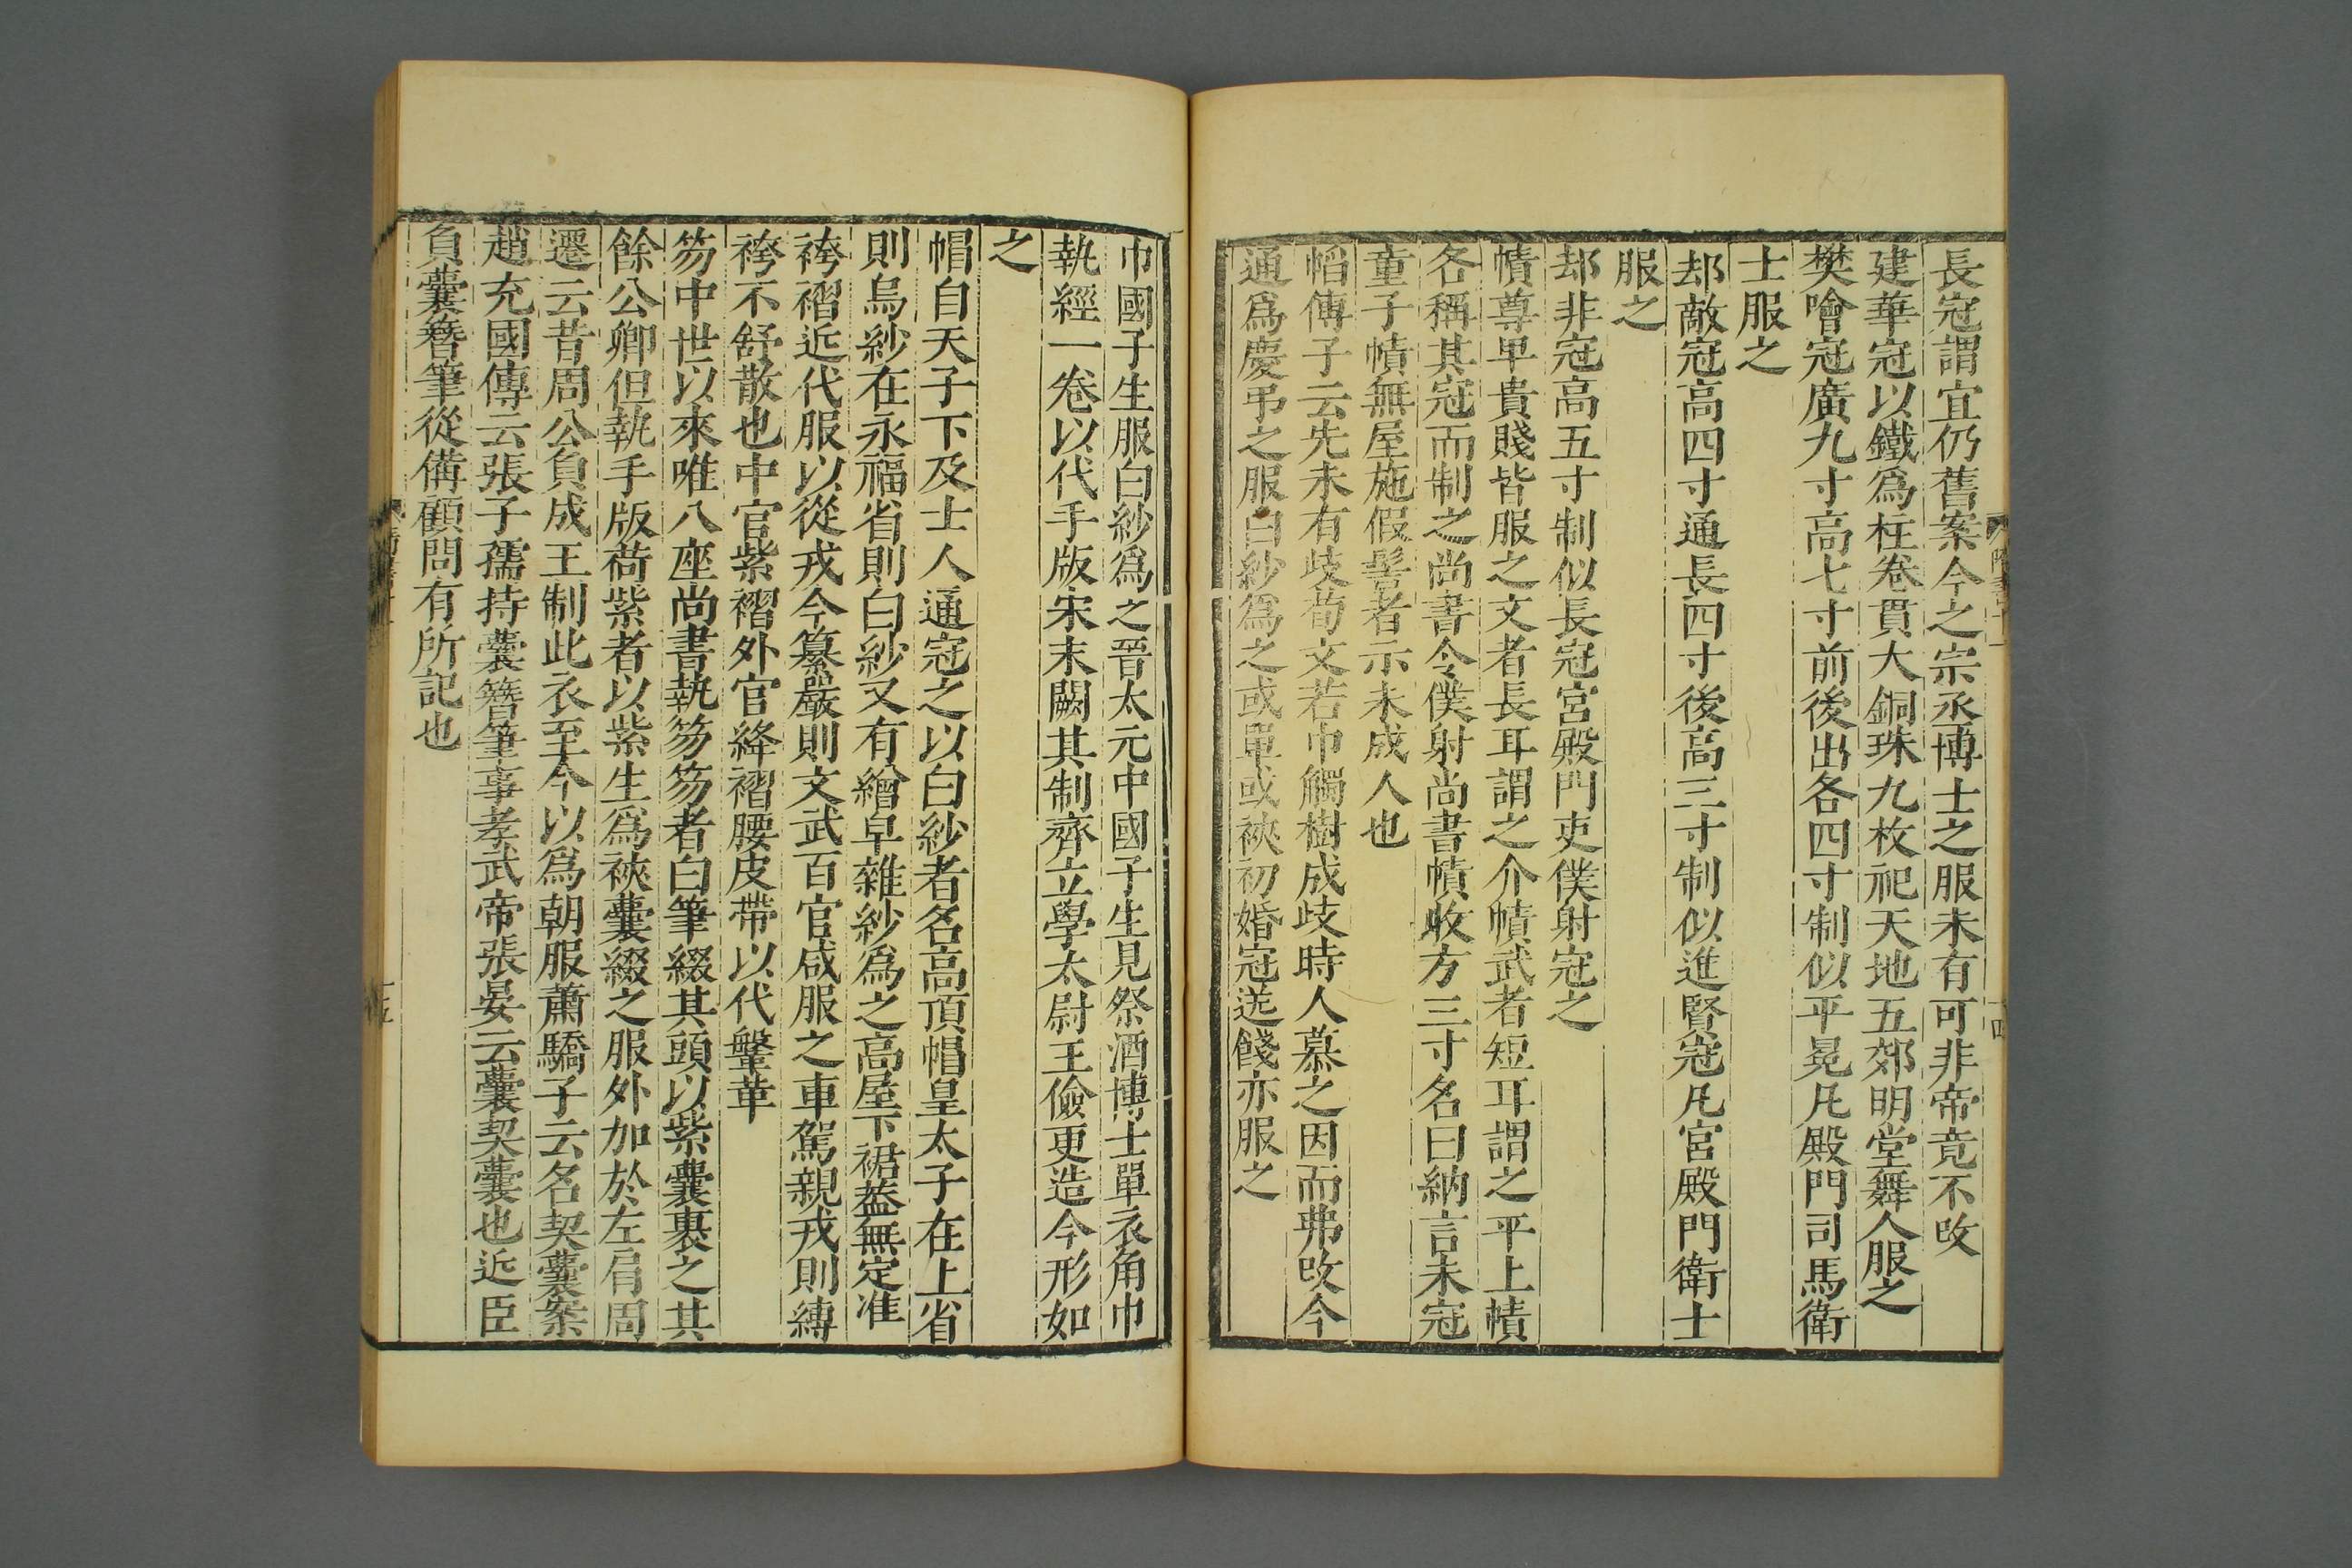 長冠謂宜仍舊案今之宗丞博士之服未有可非帝竟不改
建華冠以鐵爲柱卷貫大銅珠九枚祀天地五郊明堂舞人服之
樊噲冠廣九寸高七寸前後出各四寸制似平冕凡殿門司馬衛
士服之
却敵冠高四寸通長四寸後高三寸制似進賢冠凡宮殿門衛士
服之
却非冠高五寸制似長冠宮殿門吏僕射冠之
幘尊卑貴賤皆服之文者長耳謂之介幘武者短耳謂之平上幘
各稱其冠而制之尚書令僕射尚書幘收方三寸名曰納言未冠
童子幘無屋施假髻者示未成人也
帽傳子云先未有歧荀文若巾觸樹成歧時人慕之因而弗改今
通爲慶弔之服白紗爲之或單或裌初婚冠送餞亦服之
巾國子生服白紗爲之晉太元中國子生見祭酒博士單衣角巾
執經一卷以代手版宋末闕其制齊立學太尉王儉更造今形如
之
帽自天子下及士人通冠之以白紗者名高頂帽皇太子在上省
則烏紗在永福省則白紗又有繒皁雜紗爲之高屋下裙蓋無定准
袴褶近代服以從戎今纂嚴則文武百官咸服之車駕親戎則縛
袴不舒散也中官紫褶外官絳褶腰皮帶以代鞶革
笏中世以來唯八座尚書執笏笏者白筆綴其頭以紫囊裹之其
餘公卿但執手版荷紫者以紫生爲裌囊綴之服外加於左肩周
遷云昔周公負成王制此衣至今以爲朝服蕭驕子云名契囊案
趙充國傳云張子孺持囊簪筆事孝武帝張晏云囊契囊也近臣
負囊簪筆從備顧問有所記也